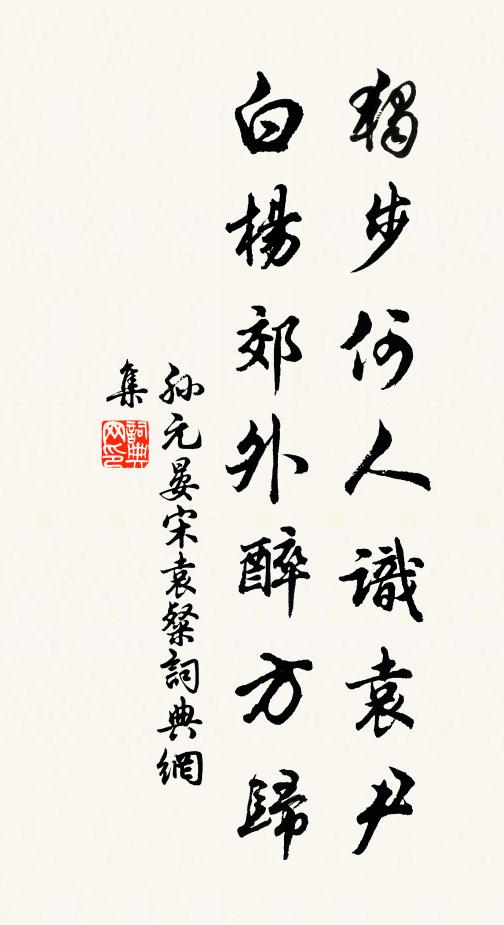 獨步何人識袁尹
白楊郊外醉方歸
孫元晏宋袁粲詞典網
集
詞典
网印